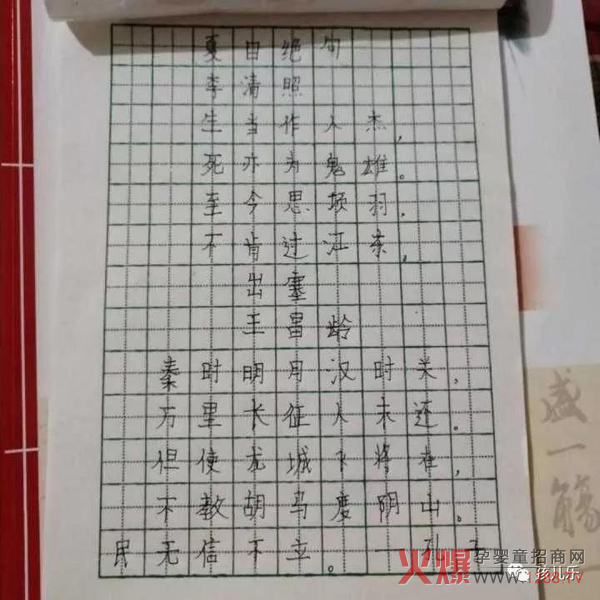 夏日绝句
李清照
生当作人杰,
死亦为鬼雄。
至今思项羽,
不肯过江东,
出塞
王昌龄
秦时明月汉时关,
万里长征人未还。
但使龙城飞将在,
不教胡马度阴山。
民无信不立。一孔子
盛一觞
火爆孕婴童招商网
www.1288.TV
孩儿乐